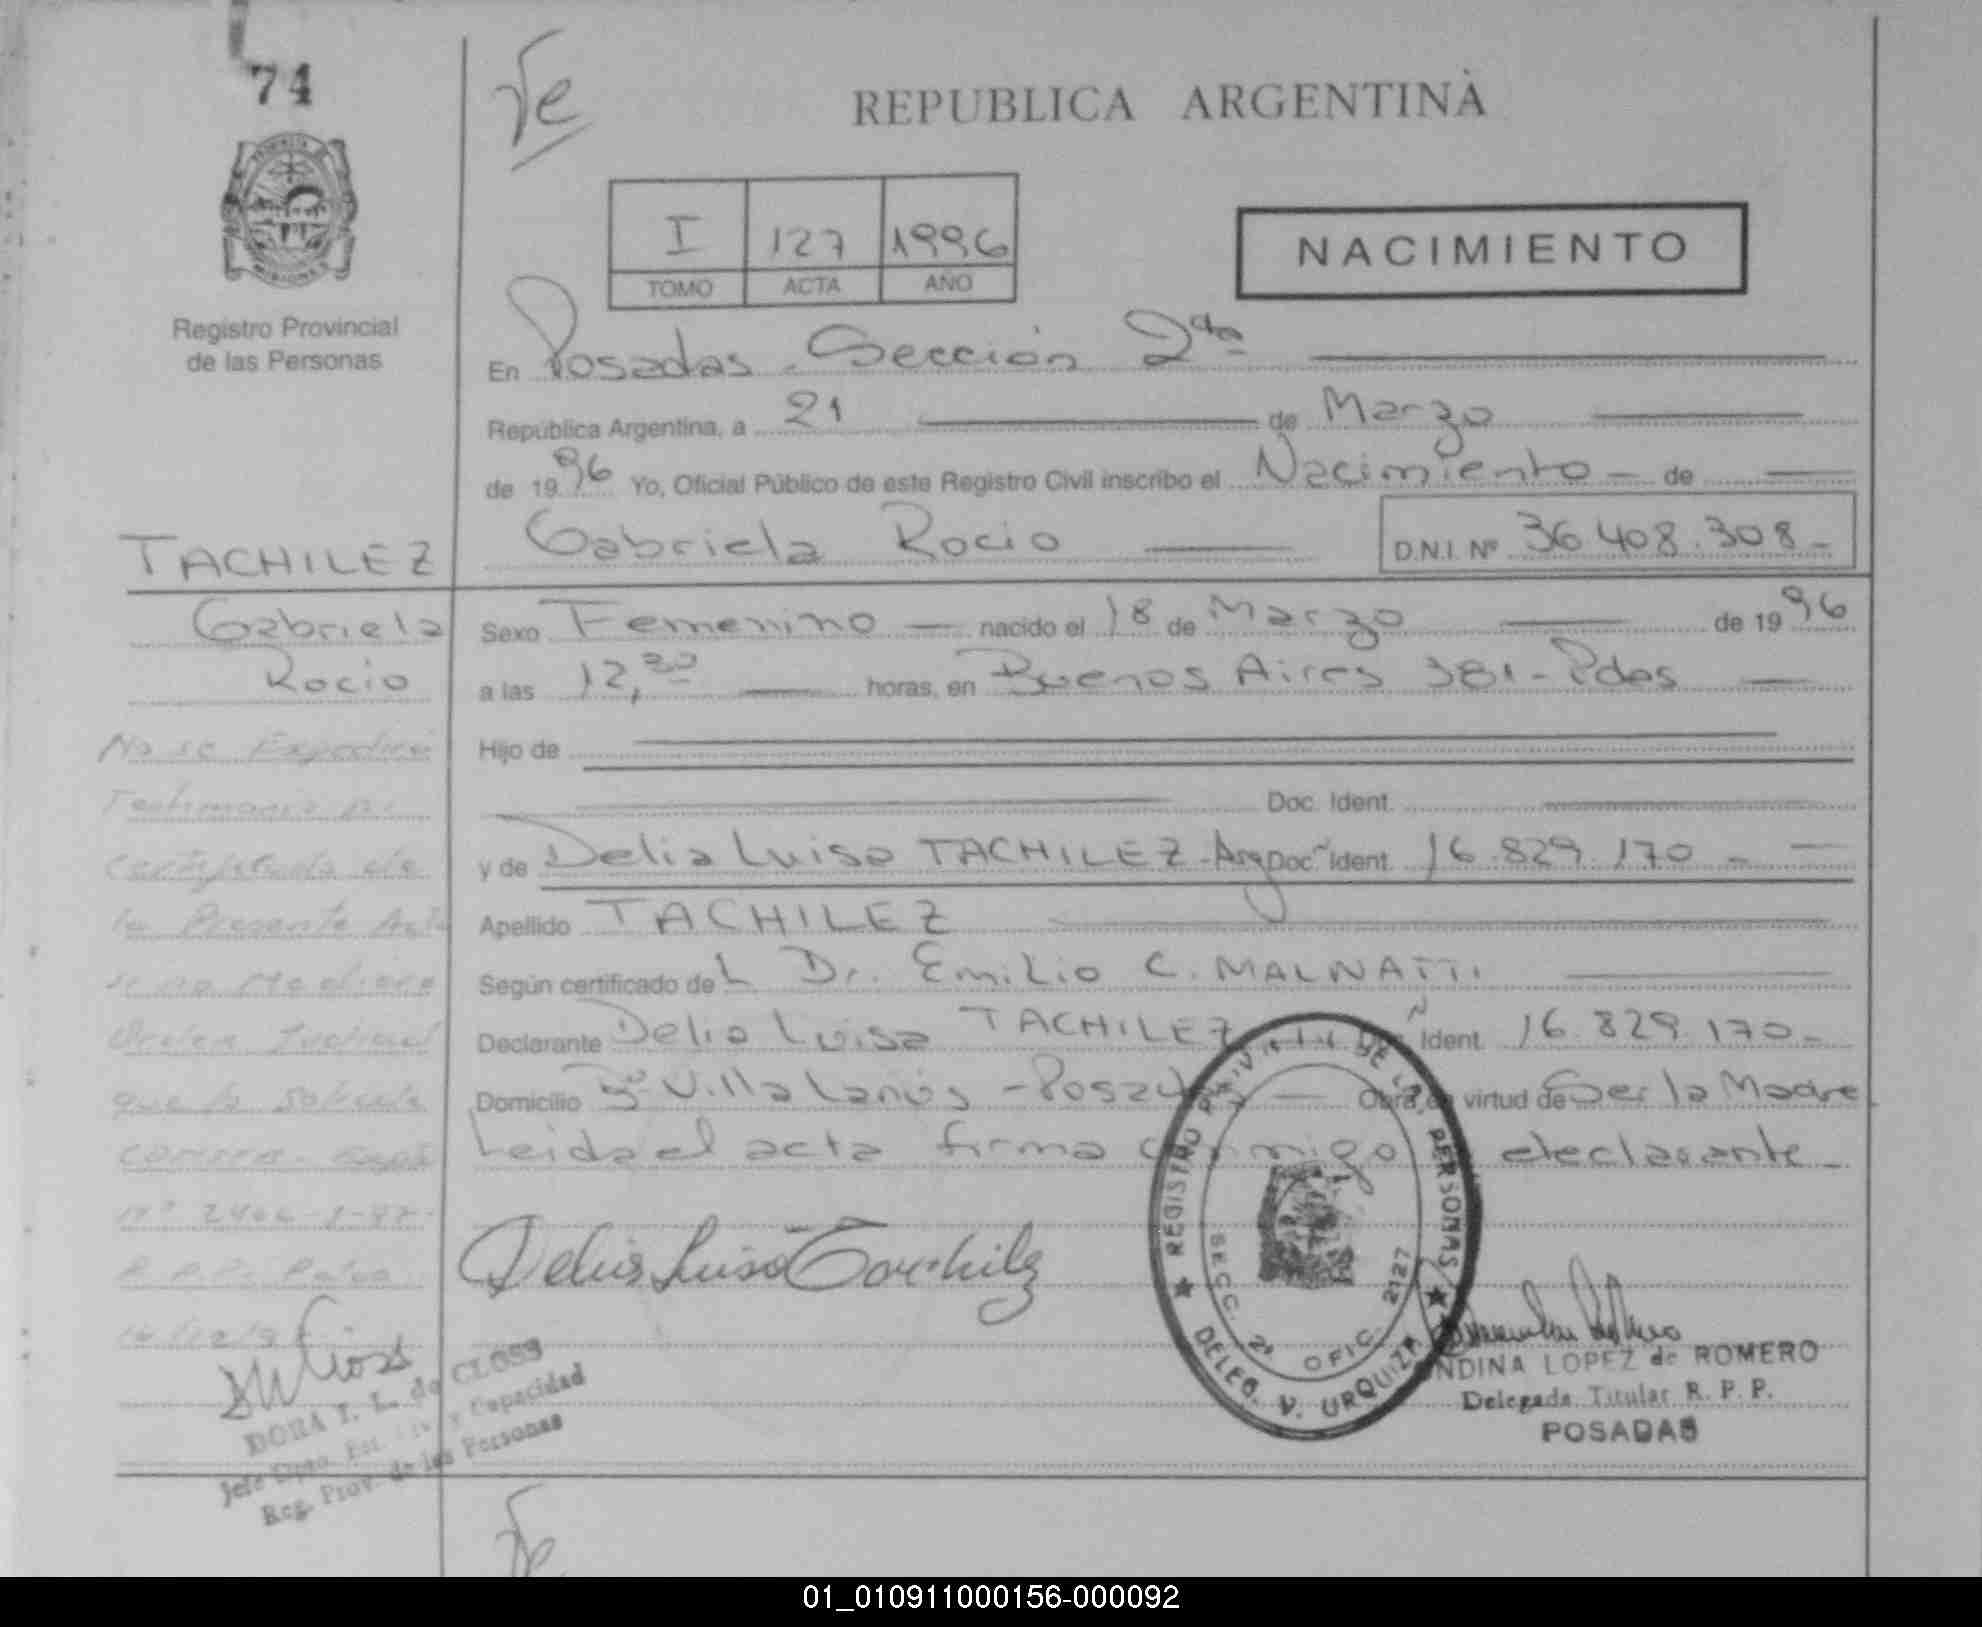 74
REPUBLICA ARGENTINA
I 127 1996
TOMO ACTA AÑO
NACIMIENTO
Registro Provincial
de las Personas
En Posadas - Sección 2da
República Argentina, a 21 de Marzo
de 1996 Yo, Oficial Público de este Registro Civil inscribo el Nacimiento - de
Gabriela Rocio D.N.I. Nº 36.408.308-
TACHILEZ
Gabriela
Rocio
Sexo Femenino nacido el 18 de Marzo de 1996
a las 12,30 horas, en Buenos Aires 381 - Pdas
Hijo de
Doc. Ident.
y de Delia Luisa TACHILEZ - Arg Doc. Ident. 16.829.170-
Apellido TACHILEZ
Según certificado del Dr. Emilio C. MALNATTI
Declarante Delia Luisa TACHILEZ Ident. 16.829.170-
Domicilio Villa Lanús - Posadas Obra en virtud de Ser la Madre
Leida el acta firma conmigo declarante-
No se Expedirá
Testimonio ni
Certificado de
la Presente Acta
si no Mediare
Orden Judicial
que lo solicite
R.P.P.
Delia Luisa Tachilez
REGISTRO PROVINCIAL DE LAS PERSONAS
SECC. 2ª OFIC. 2127
DELEG. V. URQUIZA
NDINA LOPEZ de ROMERO
Delegada Titular R. P. P.
POSADAS
DORA I. L. de CLOSS
Jefe Dpto. Est. Civ. y Capacidad
Reg. Prov. de las Personas
01_010911000156-000092